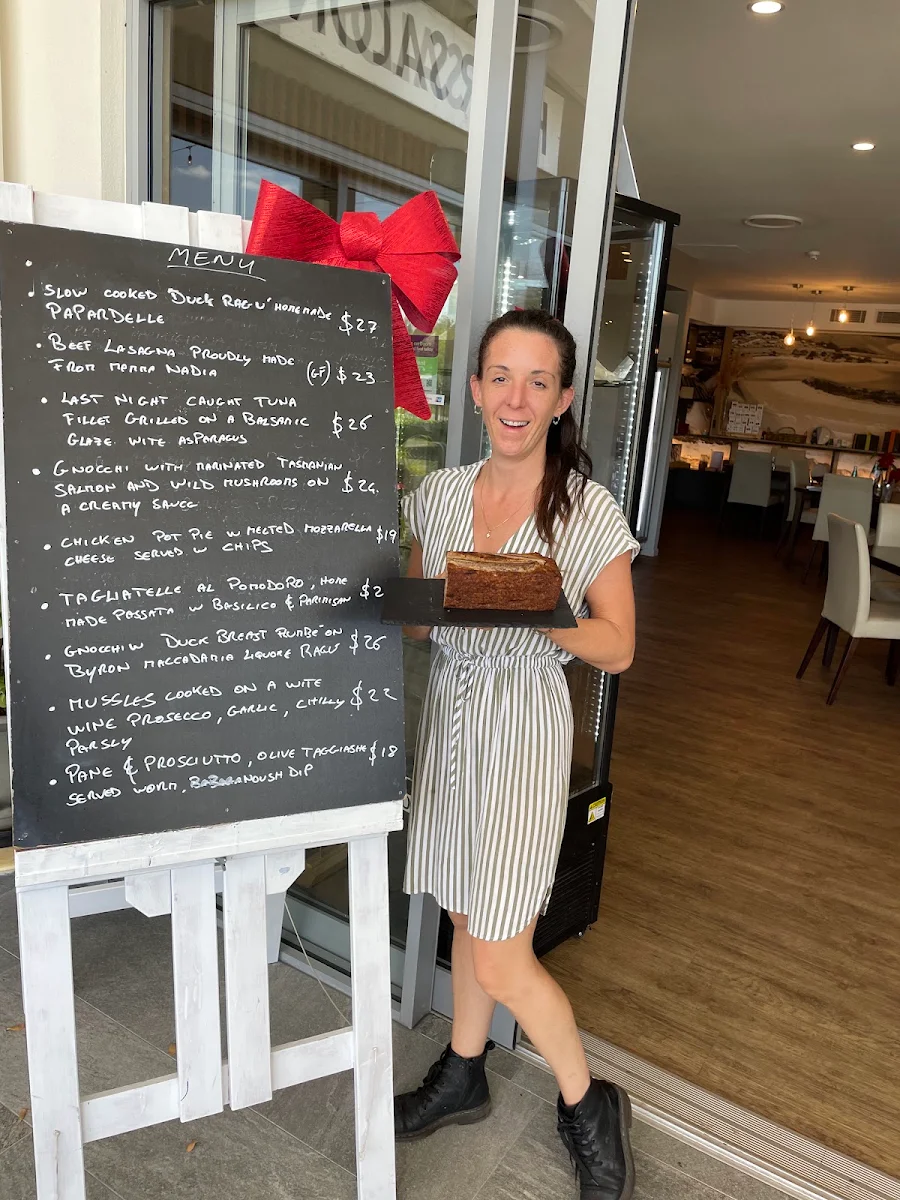 RSSALON
MENU
• SLOW COOKED 'DUCK RAGU' HOMEMADE
PAPARDELLE $27
• BEEF LASAGNA PROUDLY MADE
FROM MAMMA NADIA (GF) $23
• LAST NIGHT CAUGHT TUNA
FILLET GRILLED ON A BALSAMIC $26
GLAZE WITE ASPARAGUS
• GNOCCHI WITH MARINATED TASMANIAN
SALMON AND WILD MUSHROOMS ON $24
A CREAMY SAUCE
• CHICKEN POT PIE W MELTED MOZZARELLA $19
CHEESE SERVED W CHIPS
• TAGLIATELLE AL POMODORO, HOME $2
MADE PASSATA W BASILICO & PARMISAN
• GNOCCHI W DUCK BREAST ON $26
BYRON MACCADAMIA LIQUORE RAGU
• MUSSLES COOKED ON A WITE $22
WINE PROSECCO, GARLIC, CHILLY
PARSLY
• PANE & PROSCIUTTO, OLIVE TAGGIASHE $18
SERVED DIP